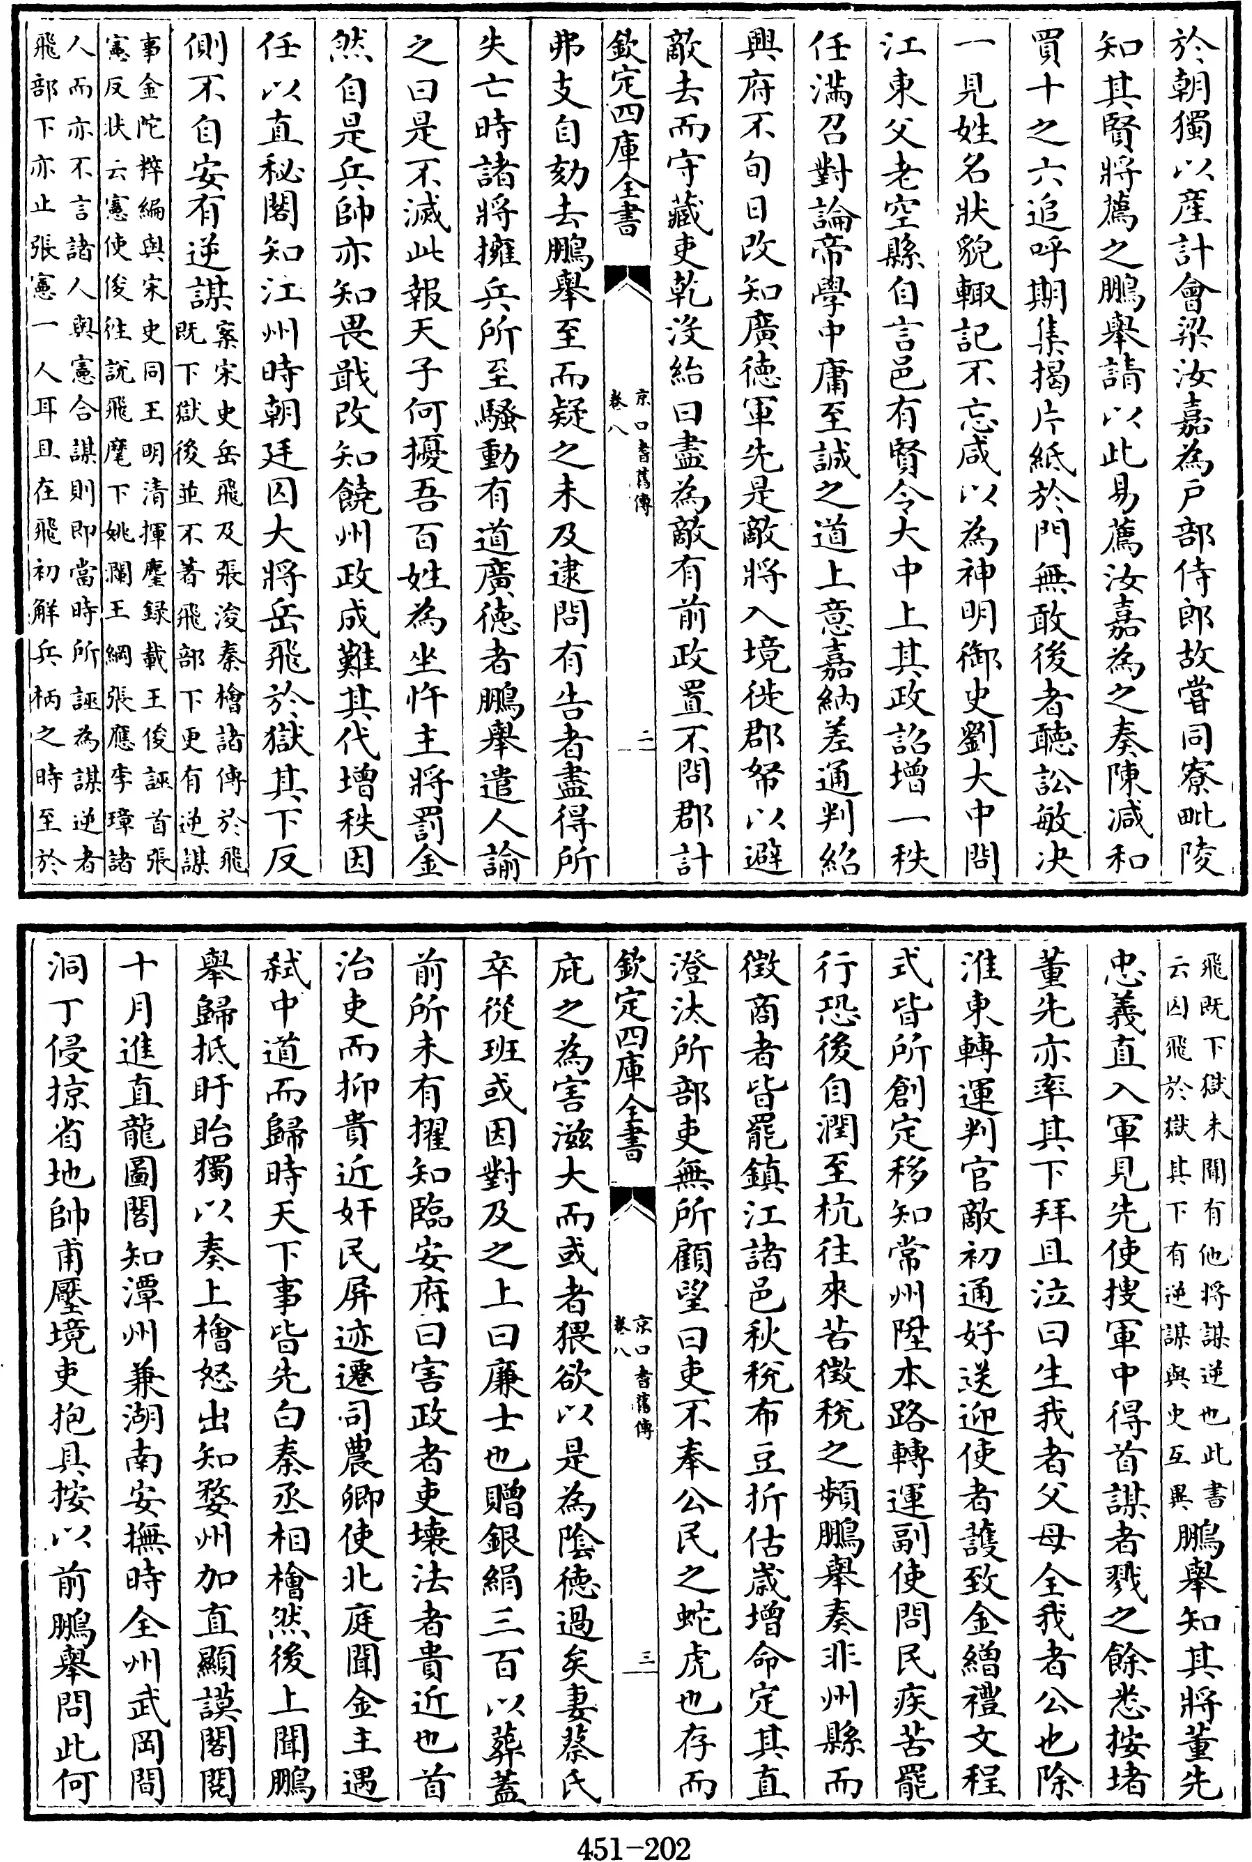 於朝獨以産計會梁汝嘉為戸部侍郎故嘗同寮毗陵
知其賢將薦之鵬舉請以此易薦汝嘉為之奏陳減和
買十之六追呼期集揭片紙於門無敢後者聽訟敏决
一見姓名狀貌輙記不忘咸以為神明御史劉大中問
江東父老空縣自言邑有賢令大中上其政詔增一秩
任滿召對論帝學中庸至誠之道上意嘉納差通判紹
興府不旬日改知廣徳軍先是敵將入境徙郡帑以避
敵去而守藏吏乾沒紿曰盡為敵有前政置不問郡計
欽定四庫全書
京口耆舊傳
卷八
二
弗支自劾去鵬舉至而疑之未及逮問有告者盡得所
失亡時諸將擁兵所至騷動有道廣徳者鵬舉遣人諭
之曰是不滅此報天子何擾吾百姓為坐忤主將罰金
然自是兵帥亦知畏戢改知饒州政成難其代增秩因
任以直秘閣知江州時朝廷囚大將岳飛於獄其下反
側不自安有逆謀
案宋史岳飛及張浚秦檜諸傳於飛
既下獄後並不著飛部下更有逆謀
事金陀稡編與宋史同王明清揮麈録載王俊誣首張
憲反狀云憲使俊往說飛麾下姚瀾王綱張應李璋諸
人而亦不言諸人與憲合謀則即當時所誣為謀逆者
飛部下亦止張憲一人耳且在飛初解兵柄之時至於
飛既下獄未聞有他將謀逆也此書
云囚飛於獄其下有逆謀與史互異
鵬舉知其將董先
忠義直入軍見先使搜軍中得首謀者戮之餘悉按堵
董先亦率其下拜且泣曰生我者父母全我者公也除
淮東轉運判官敵初通好送迎使者護致金繒禮文程
式皆所創定移知常州陞本路轉運副使問民疾苦罷
行恐後自潤至杭往來苦徵稅之頻鵬舉奏非州縣而
徵商者皆罷鎮江諸邑秋稅布豆折估嵗增命定其直
澄汰所部吏無所顧望曰吏不奉公民之蛇虎也存而
欽定四庫全書
京口耆舊傳
卷八
三
庇之為害滋大而或者猥欲以是為陰徳過矣妻蔡氏
卒從班或因對及之上曰廉士也贈銀絹三百以葬蓋
前所未有擢知臨安府曰害政者吏壊法者貴近也首
治吏而抑貴近奸民屏迹遷司農卿使北庭聞金主遇
弑中道而歸時天下事皆先白秦丞相檜然後上聞鵬
舉歸抵盱眙獨以奏上檜怒出知婺州加直顯謨閣閱
十月進直龍圖閣知潭州兼湖南安撫時全州武岡間
洞丁侵掠省地帥甫壓境吏抱具按以前鵬舉問此何
451-202